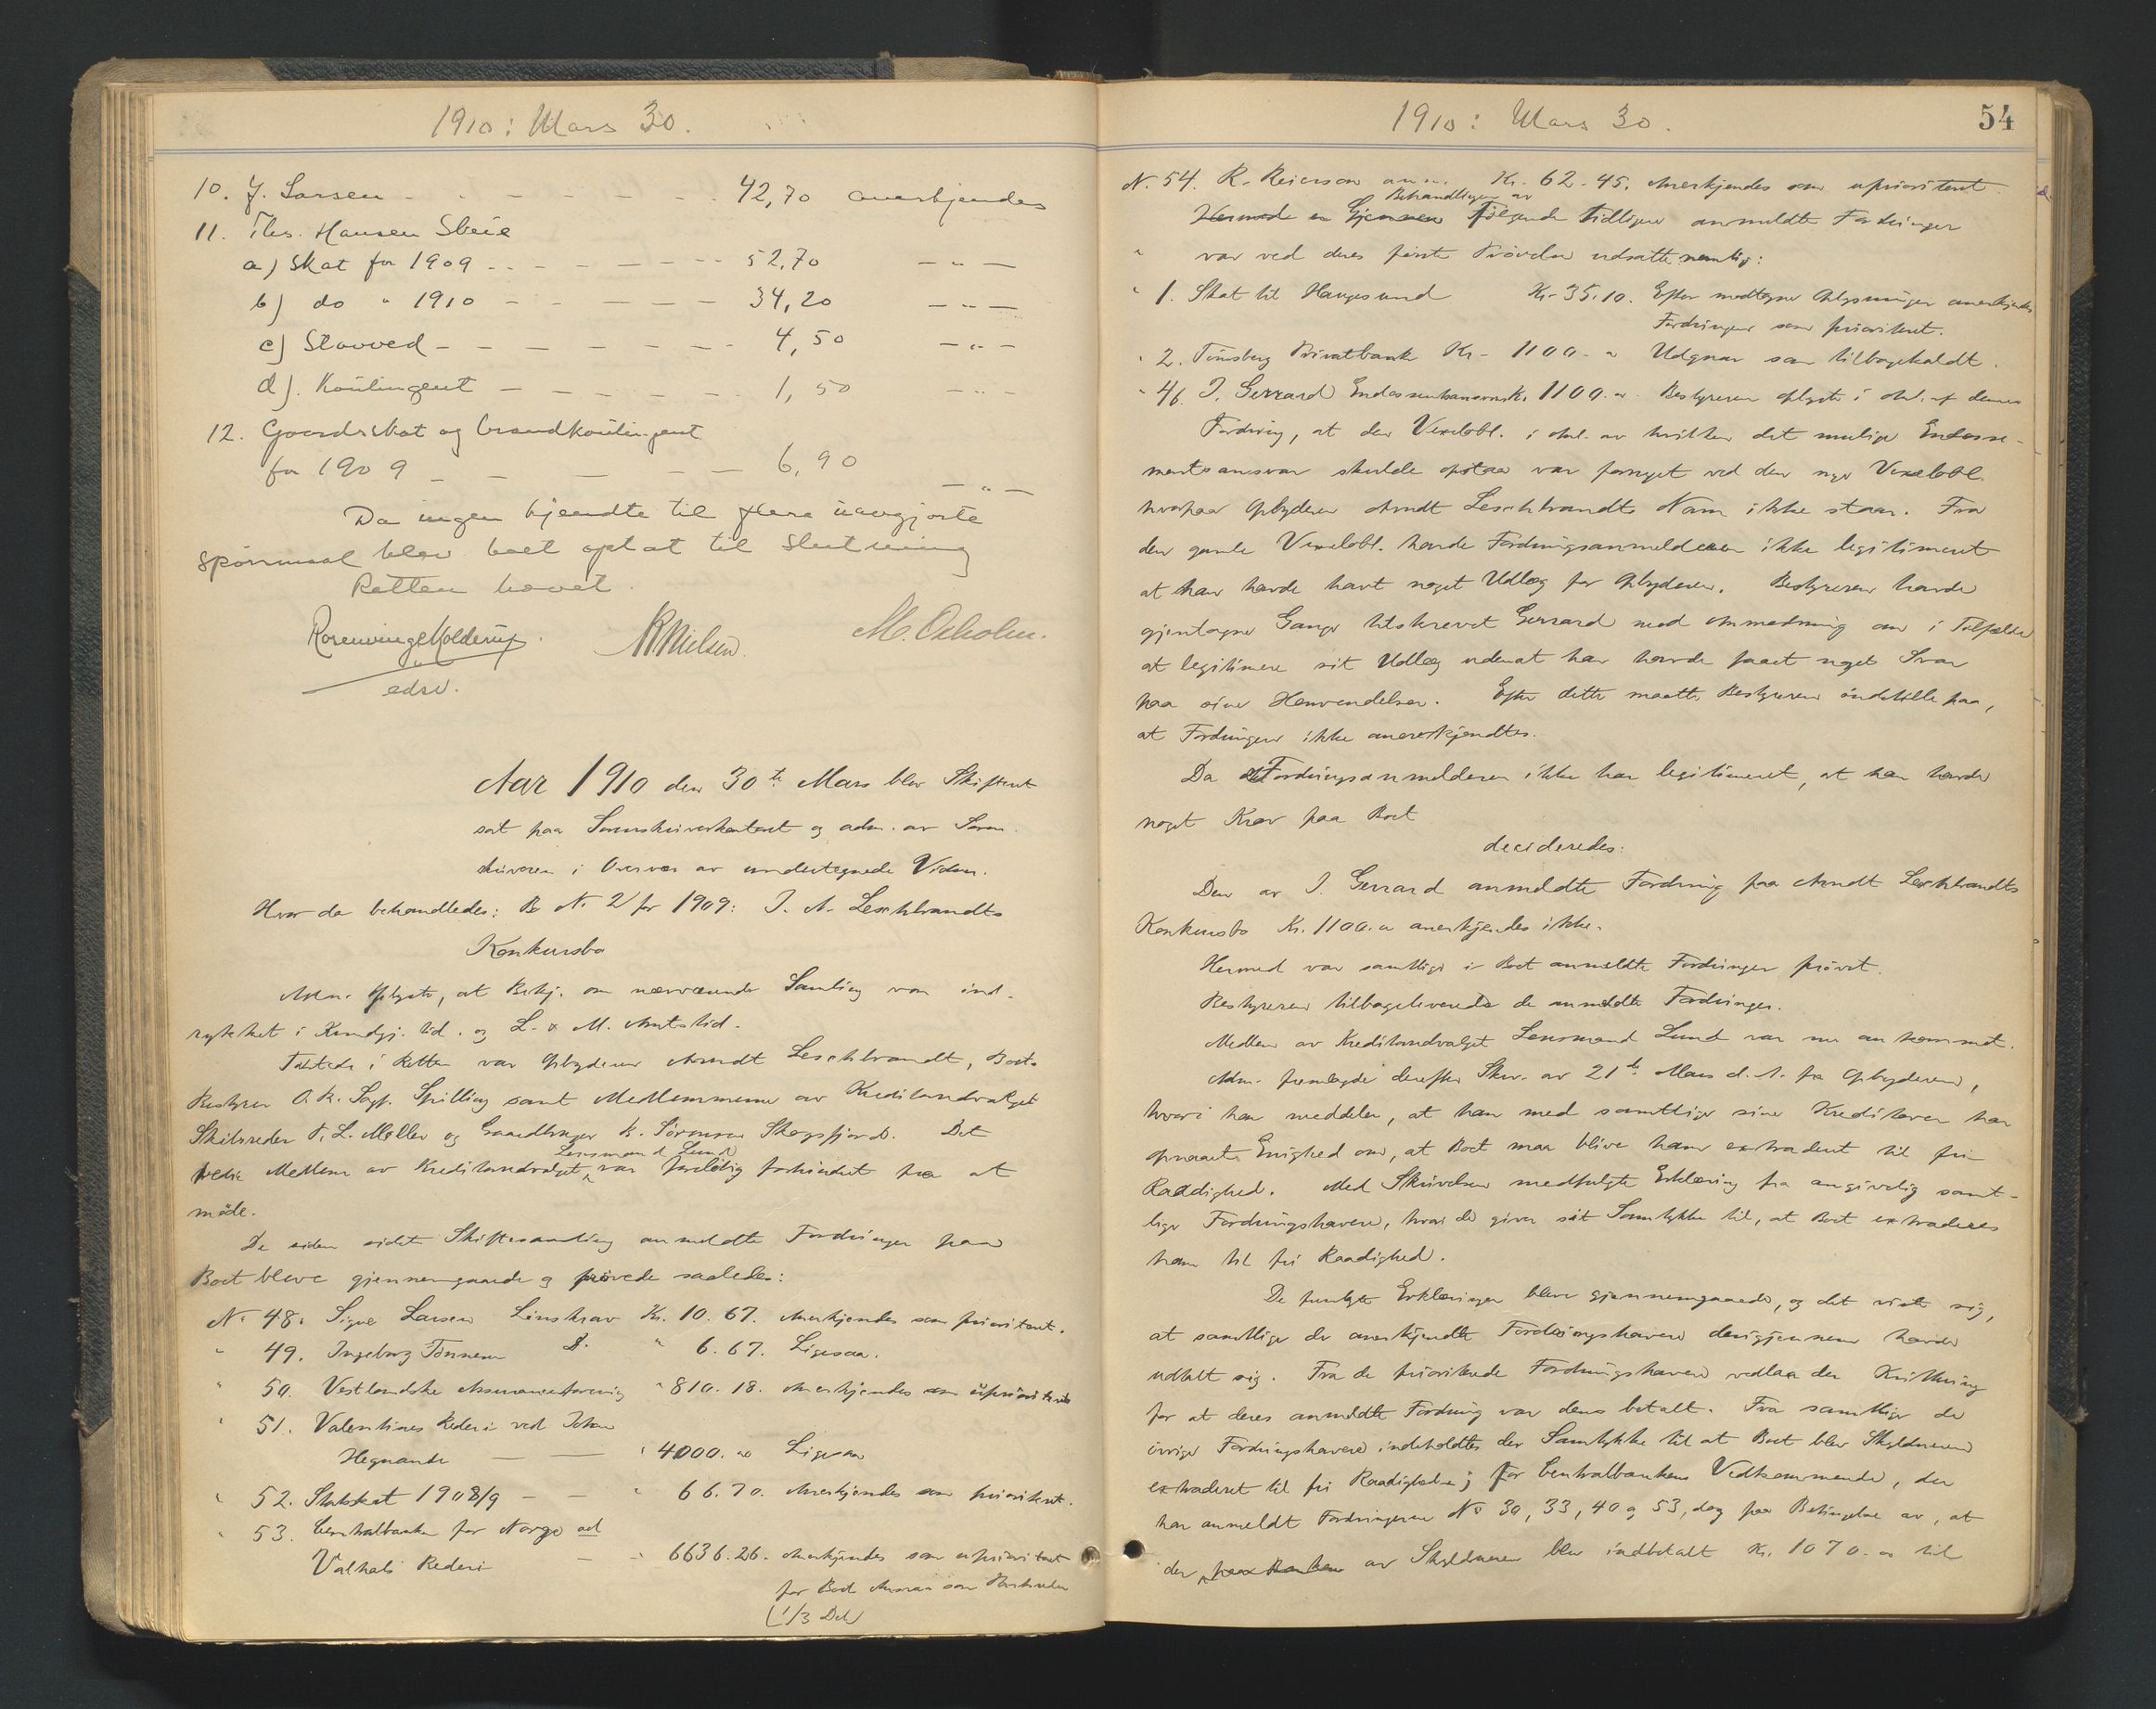 1910: Mars 30.
10. J. Larsen - - - - - - 42,70 anerkjendes
11. Ths. Hansen Sleie
a) Skat for 1909 - - - - - - 52,70 - " -
b) do " 1910 - - - - - 34,20 - " -
c) Slovved - - - - - - - 4,50 - " -
d). Kontingent - - - - - - 1,50 - " -
12. Gaardskat og brandkontingent
for 1909 - - - - - 6,90 - " -
Da ingen kjendte til flere uavgjorte
spørsmaal blev boet optat til slutning
Retten hævet.
Rosenvinge Kolderup. N Nielsen. M. Oxholm.
edsv.
Aar 1910 den 30te Mars blev Skifteret
sat paa Sorenskriverkontoret og adm. av Soren
skriveren i Overvær av undertegnede Vidner.
Hvor da behandledes: Bo No. 2 for 1909: J. A. Leschbrandts
Konkursbo
Adm. oplyste, at Bekj. om nærværende Samling var ind-
rykket i Kundgj. tid. og L. & M. Amtstid.
Tilstede i Retten var Opbyderen Arndt Leschbrandt, Boets
Bestyrer O. R. Sagf. Spilling samt Medlemmerne av Kreditorudvalget
Skibsreder F. L. Møller og Gaardbruger B. Sörensen Skogsfjord. Det
tredie Medlem av Kreditorudvalget Lensmand Lund var foreløbig forhindret fra at
møde.
De siden sidste Skiftesamling anmeldte Fordringer paa
Boet bleve gjennemgaaede og prøvede saaledes:
No. 48. Signe Larsen Lönskrav Kr. 10.67. Anerkjendes som prioritert.
" 49. Ingeborg Tönnesen D. " 6.67. Ligesaa.
" 50. Vestlandske Assuranceforening " 810.18. Anerkjendes som uprioriteret
" 51. Valentines Rederi ved Johan
Hegnande - - " 4000.00 Ligesaa
" 52. Statsskat 1908/9 - - " 66.70. Anerkjendes som prioritert.
" 53. Centralbanken for Norge ad
Valhals Rederi - - " 6636.26. Anerkjendes som uprioritert
for Boets Ansvar som Partsreder
(1/3 Del)
1910: Mars 30.
54
No. 54. R. Reierson anm. Kr. 62.45. Anerkjendes som uprioritert.
Behandlingen av
Hermed er Gjennem følgende tidligere anmeldte Fordringer
" var ved deres første Prövelse udsatte nemlig:
" 1. Skat til Haugesund Kr. 35.10. Efter modtagne Oplysninger anerkjendes
Fordringen som prioriteret.
" 2. Tönsberg Privatbank Kr. 1100.00 Udgaar som tilbagekaldt.
" 46. J. Gerrard Endossementsansvar Kr. 1100.00. Bestyreren oplyste i Anl. af denne
Fordring, at den Vexelobl. i Anl. av hvilken det mulige Endosse-
mentsansvar skulde opstaa var fornyet ved den nye Vexelobl.
hvorpaa Opbyderen Arndt Leschbrandts Navn ikke staar. Fra
den gamle Vexelobl. havde Fordringsanmelderen ikke legitimeret
at han havde havt noget Udlæg for Opbyderen. Bestyreren havde
gjentagne Gange tilskrevet Gerrard med Anmodning om i Tilfælde
at legitimere sit Udlæg uden at han havde faaet noget Svar
paa sine Henvendelser. Efter dette maatte Bestyreren indstille paa,
at Fordringen ikke anerkjendtes.
Da Fordringsanmelderen ikke har legitimeret, at han havde
noget Krav paa Boet
decideredes:
Den av J. Gerrard anmeldte Fordring paa Arndt Leschbrandts
Konkursbo Kr. 1100.00 anerkjendes ikke.
Hermed var samtlige i Boet anmeldte Fordringer prövet.
Bestyreren tilbageleverede de anmeldte Fordringer.
Medlem av Kreditorudvalget Lensmand Lund var nu ankommet.
Adm. fremlagde derefter Skr. av 21de Mars d. A. fra Opbyderen,
hvori han meddeler, at han med samtlige sine Kreditorer har
opnaaet Enighed om, at Boet maa blive ham extraderet til fri
Raadighed. Med Skrivelsen medfulgte Erklæring fra angivelig samt-
lige Fordringshavere, hvori de giver sit Samtykke til, at Boet extraderes
ham til fri Raadighed.
De fremlagte Erklæringer bleve gjennemgaaede, og det viste sig,
at samtlige de anerkjendte Fordringshavere derigjennem havde
udtalt sig. Fra de prioriterede Fordringshavere vedlaa der Kvittering
for at deres anmeldte Fordring var dem betalt. Fra samtlige de
övrige Fordringshavere indeholdtes der Samtykke til at Boet blev Skyldneren
extraderet til fri Raadighed; for Centralbankens Vedkommende, der
har anmeldt Fordringerne No 30, 33, 40 og 53, dog paa Betingelse av, at
der paa Banken av Skyldneren blev indbetalt Kr. 1070.00 til